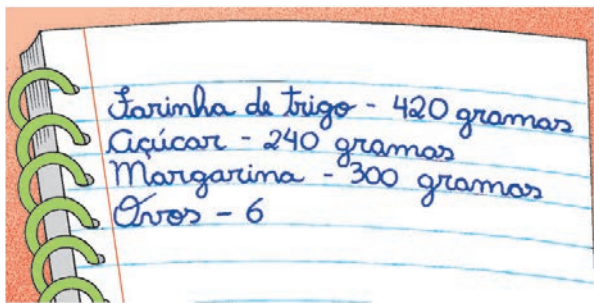 Farinha de trigo - 420 gramas
Açúcar - 240 gramas
Margarina - 300 gramas
Ovos - 6